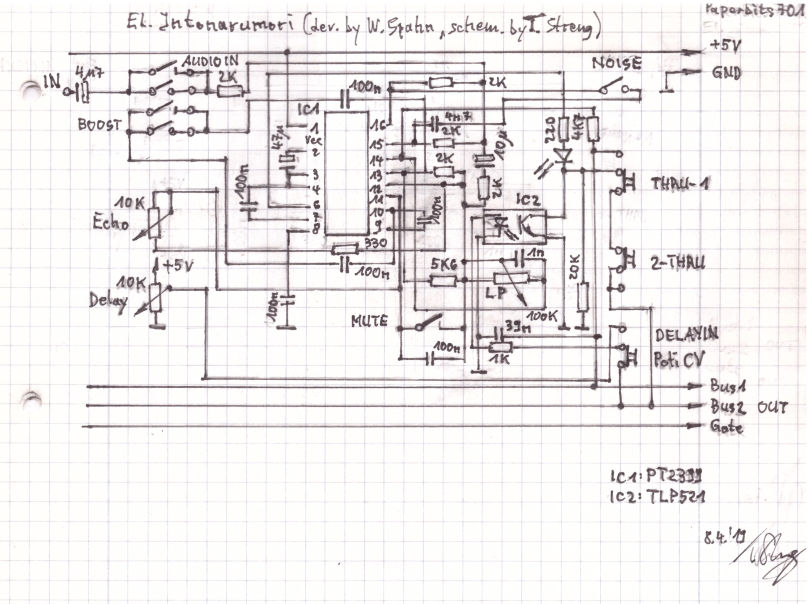 El. Intonarumori (dev. by W. Spahn, schem. by I. Streng)
Paperbits 701
+5V
GND
AUDIO IN
IN
4µ7
2K
BOOST
100n
2K
NOISE
IC1
1
Vcc
2
3
4
5
6
7
8
16
15
14
13
12
11
10
9
47µ
100n
4n7
2K
2K
10µ
2K
220
4K7
THRU-1
10K
Echo
330
100n
100n
IC2
1n
5K6
LP
100K
20K
2-THRU
+5V
10K
Delay
100n
MUTE
39n
1K
100n
DELAYIN
Poti CV
Bus1
Bus2 OUT
Gate
IC1: PT2399
IC2: TLP521
8.4.'19